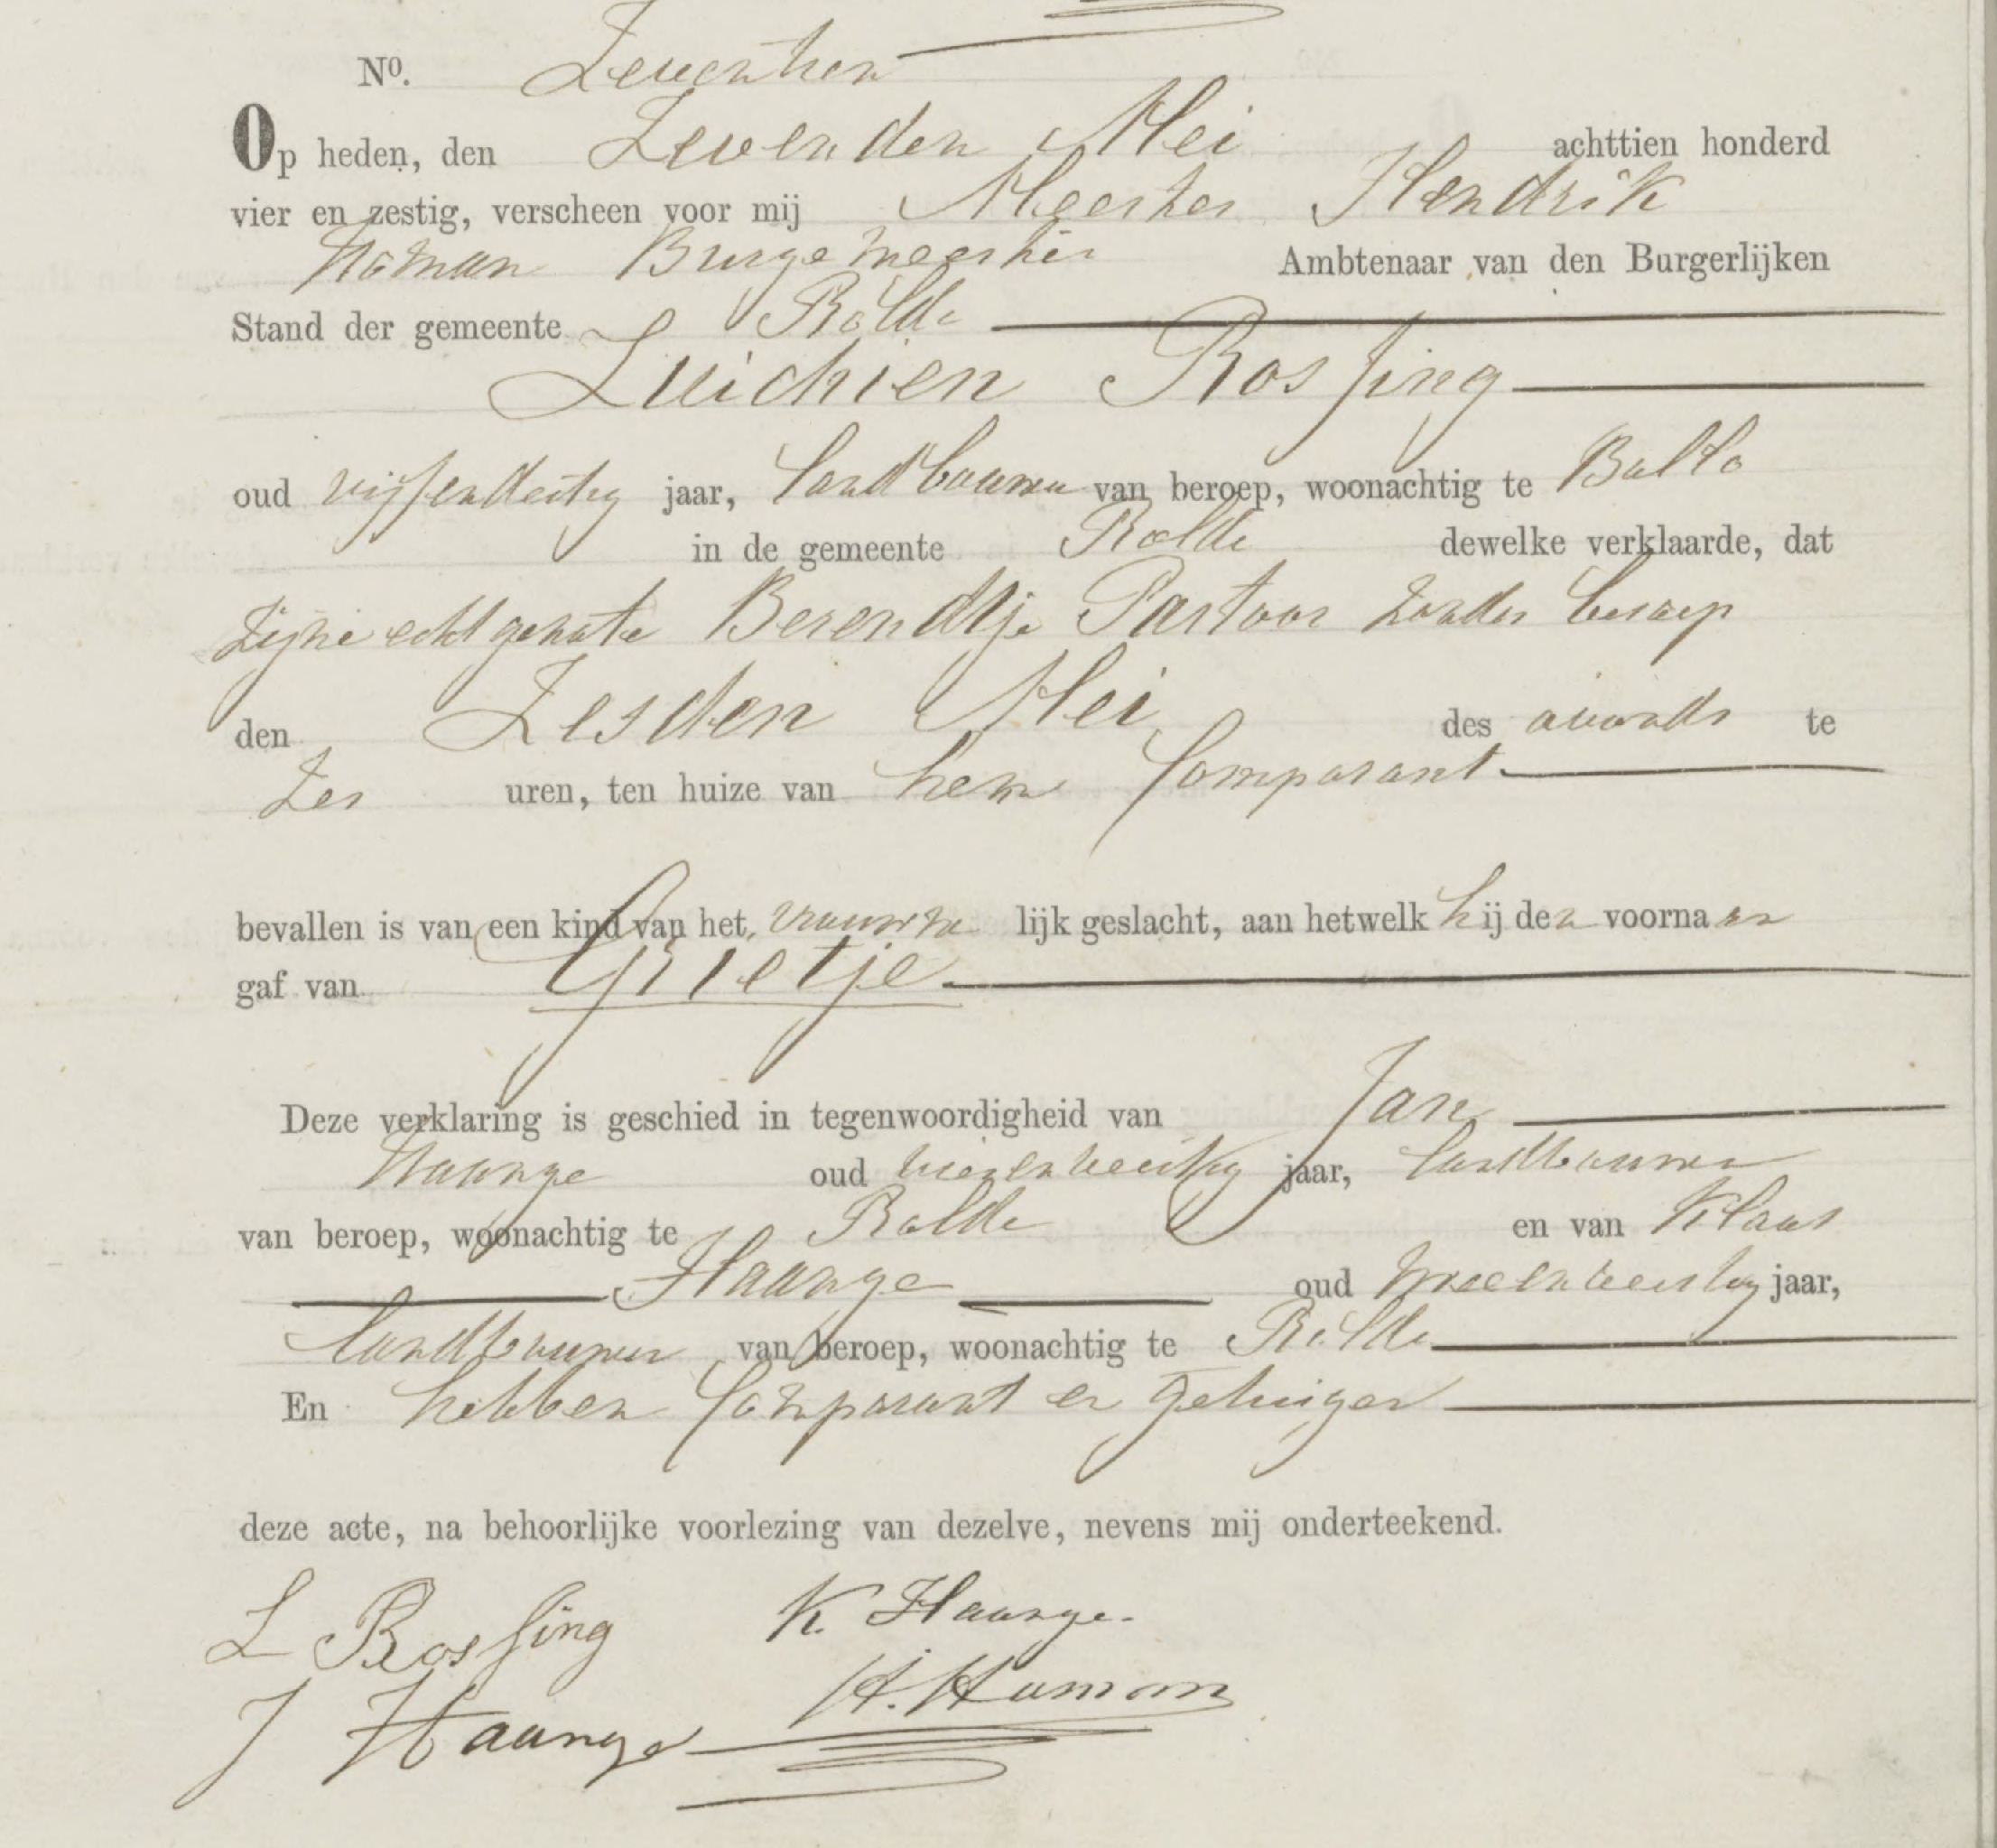 No. Zeventien
Op heden, den Zevenden Mei achttien honderd
vier en zestig, verscheen voor mij Meester Hendrik
Homan Burgemeester Ambtenaar van den Burgerlijken
Stand der gemeente Rolde
Luichien Rossing
oud vijfendertig jaar, landbouwer van beroep, woonachtig te Ballo
in de gemeente Rolde dewelke verklaarde, dat
zijne echtgenote Berendtje Pastoor zonder beroep
den Zesden Mei des avonds te
Zes uren, ten huize van hem Comparant
bevallen is van een kind van het vrouwe lijk geslacht, aan hetwelk hij den voorna en
gaf van Grietje
Deze verklaring is geschied in tegenwoordigheid van Jan
Haange oud jaar, landbouwer
van beroep, woonachtig te Rolde en van Klaas
Haange oud tweeenveertig jaar,
landbouwer van beroep, woonachtig te Rolde
En hebben Comparant en getuigen
deze acte, na behoorlijke voorlezing van dezelve, nevens mij onderteekend.
L Rossing K. Haange.
J Haange H. Homan